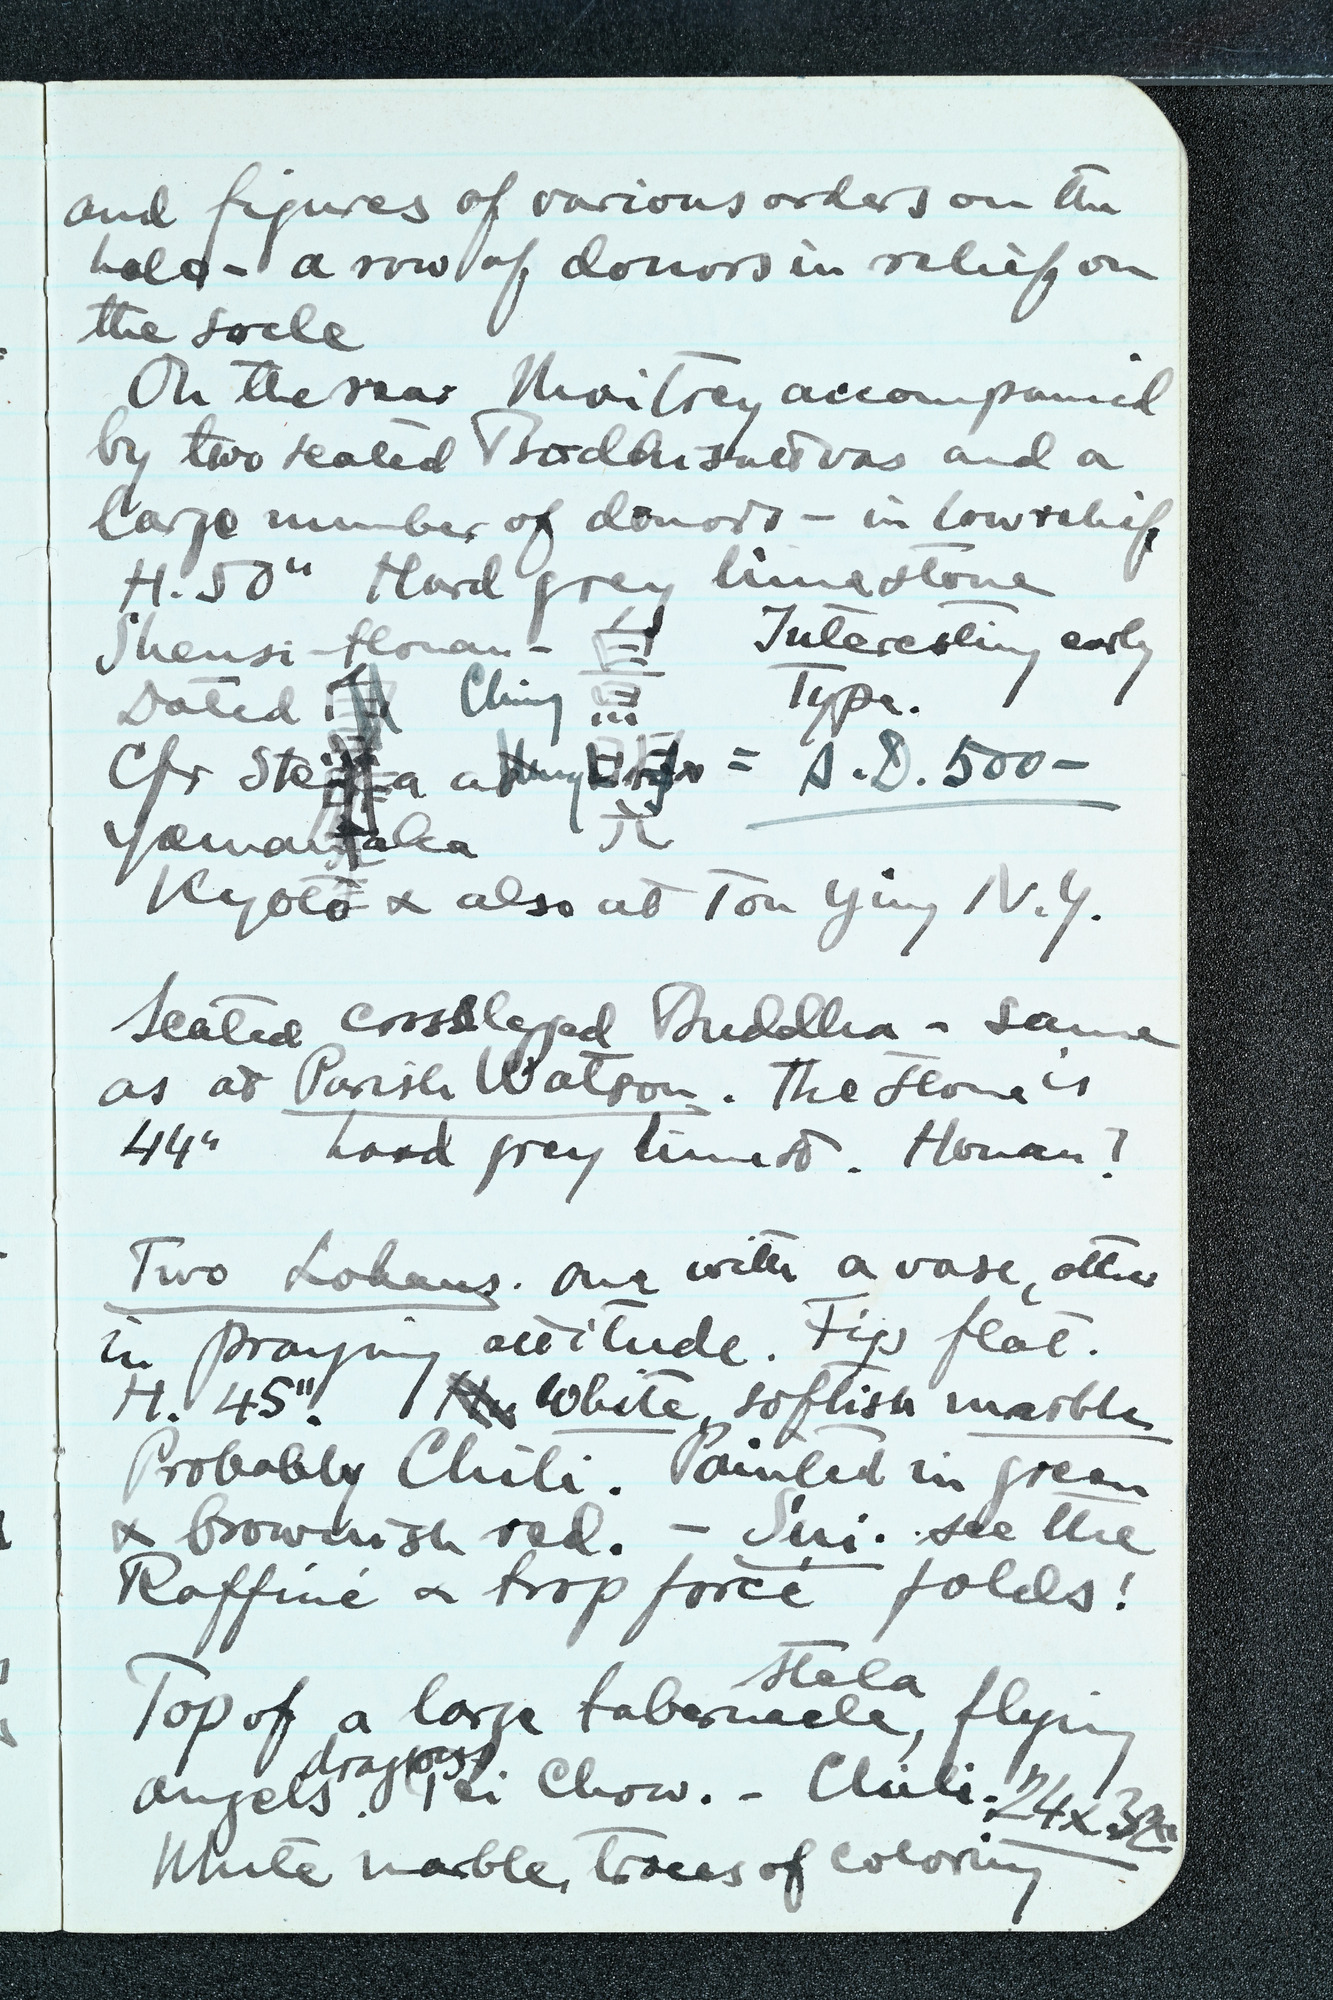 and figures of various orders on the
halo - a row of donors in relief on
the socle
On the rear Maitrey accompanied
by two seated Bodhisattvas and a
large number of donors - in low relief
H. 50" Hard grey limestone
Shensi - Honan - Interesting early
Dated Ching Type.
Cfr Stela at = A.D. 500 -
Yamanaka
Kyoto & also at Ton Ying N.Y.
Seated crosslegged Buddha - same
as at Parish Watson. The stone is
44" hard grey limest. Honan?
Two Lohans. one with a vase, other
in praying attitude. Figs flat.
H. 45". White, softish marble
Probably Chili. Painted in green
& brownish red. - Sui. see the
Raffiné & trop forcé folds!
stela
Top of a large tabernacle, flying
dragons
angels. Tei Chow. - Chili. 24 x 32"
White marble, traces of coloring